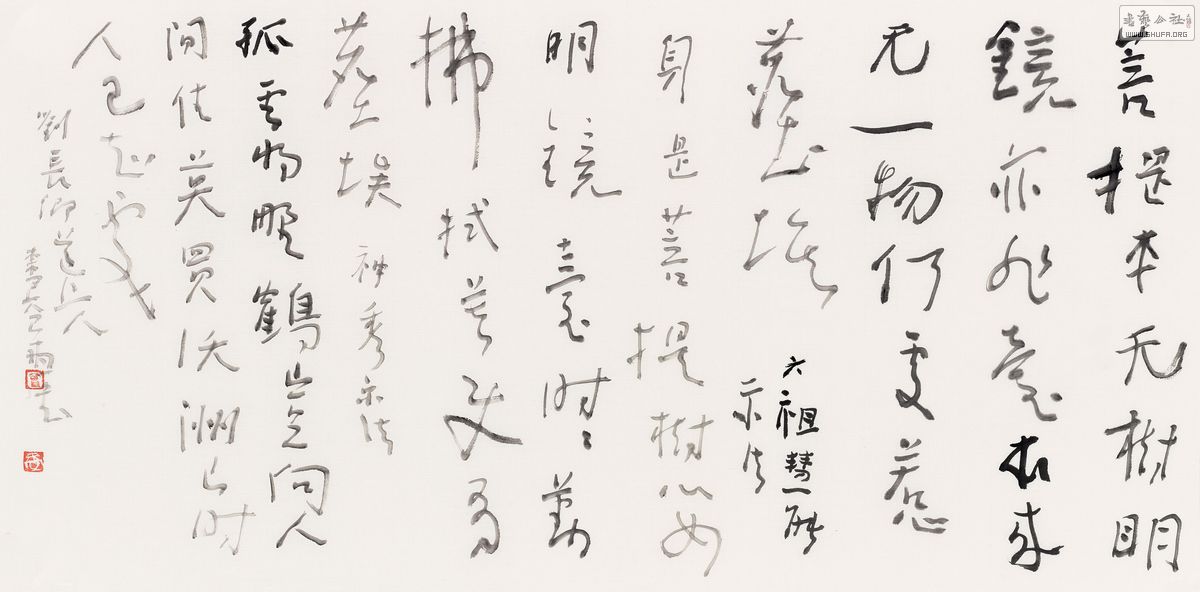 書藝公社
WWW.SHUFA.ORG
菩提本无樹明
鏡亦非臺本來
无一物何處惹
塵埃
六祖慧能
示法
身是菩提樹心如
明鏡臺時々勤
拂拭莫使有
塵埃 神秀示法
孤云將野鶴豈向人
間住莫買沃洲山時
人已知處
劉長卿送上人